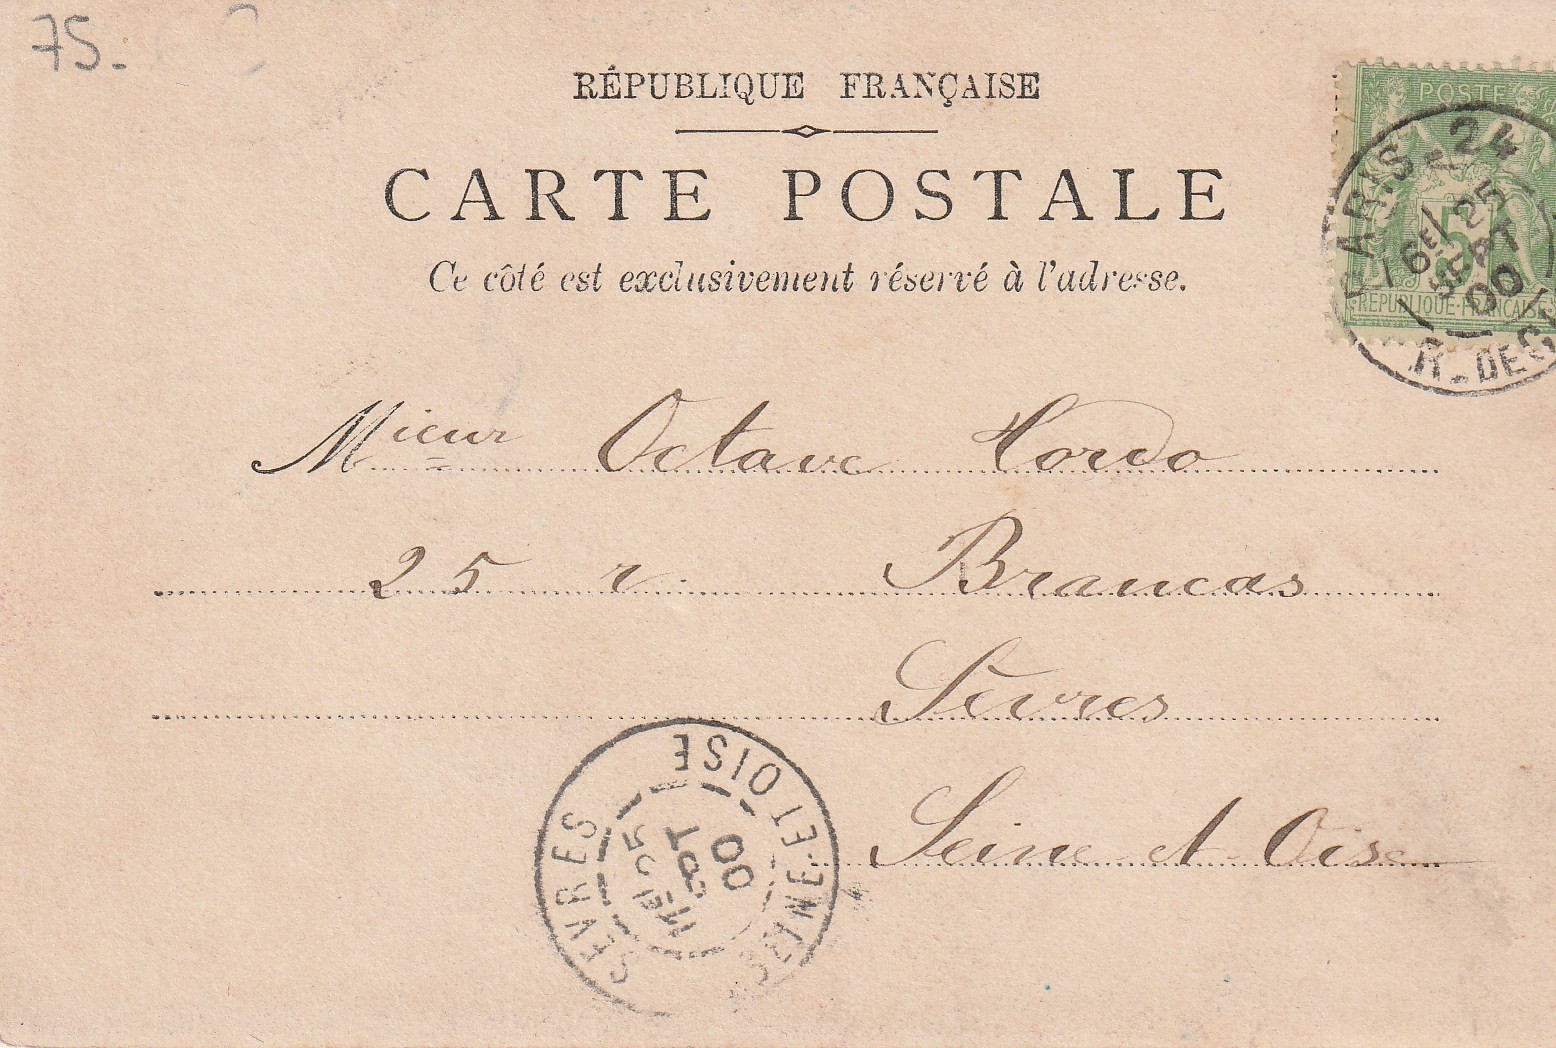 75-
RÉPUBLIQUE FRANÇAISE
CARTE POSTALE
Ce côté est exclusivement réservé à l'adresse.
POSTE
5
REPUBLIQUE-FRANÇAISE
PARIS-24
6E 25
SEPT
00
R. DE C
Mieur Octave Hordo
25 r. Brancas
Sèvres
Seine et Oise
SEVRES
SEINE-ET-OISE
25
SEPT
00